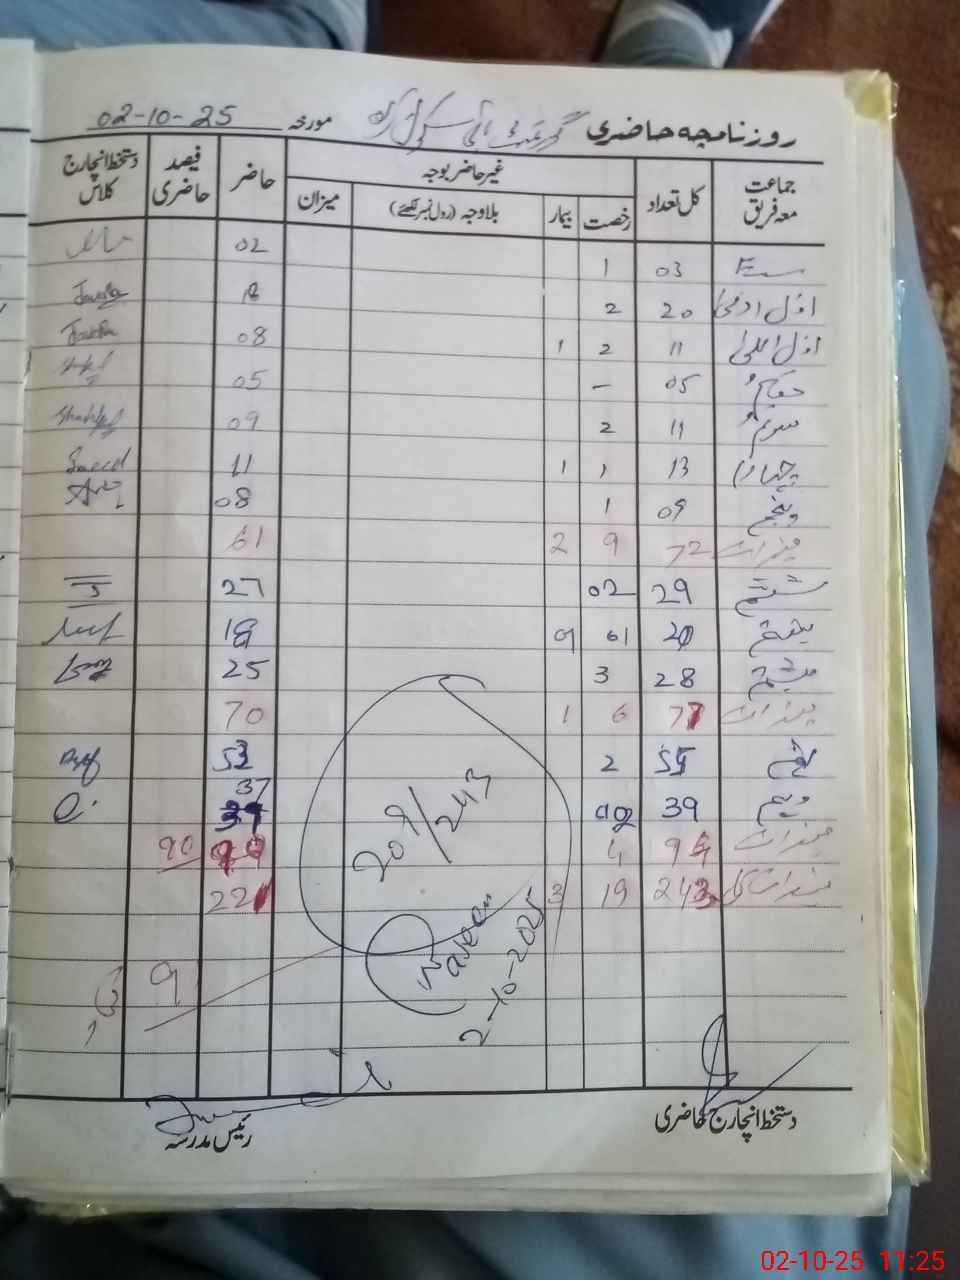 روزنامچہ حاضری گورنمنٹ ہائی سکول مورخہ 02-10-25
جماعت معہ فریق کل تعداد غیر حاضر بوجہ حاضر فیصد حاضری دستخط انچارج کلاس
رخصت بیمار بلاوجہ (رول نمبر لکھئے) میزان
03 1 02
اول ادنیٰ 20 2 18
اول اعلیٰ 11 2 1 08 Javeria
دوم 05 – 05
سوئم 11 2 09
چہارم 13 1 1 11 Saeed
پنجم 09 1 08
میزان 72 9 2 61
ششم 29 02 27
ہفتم 20 01 19
ہشتم 28 3 25
میزان 77 6 1 70
نہم 55 2 53
دہم 39 02 37
میزان 94 4 90 90
میزان کل 243 19 3 221
209/243
Naseem
2-10-2025
9
دستخط انچارج حاضری رئیس مدرسہ
02-10-25 11:25